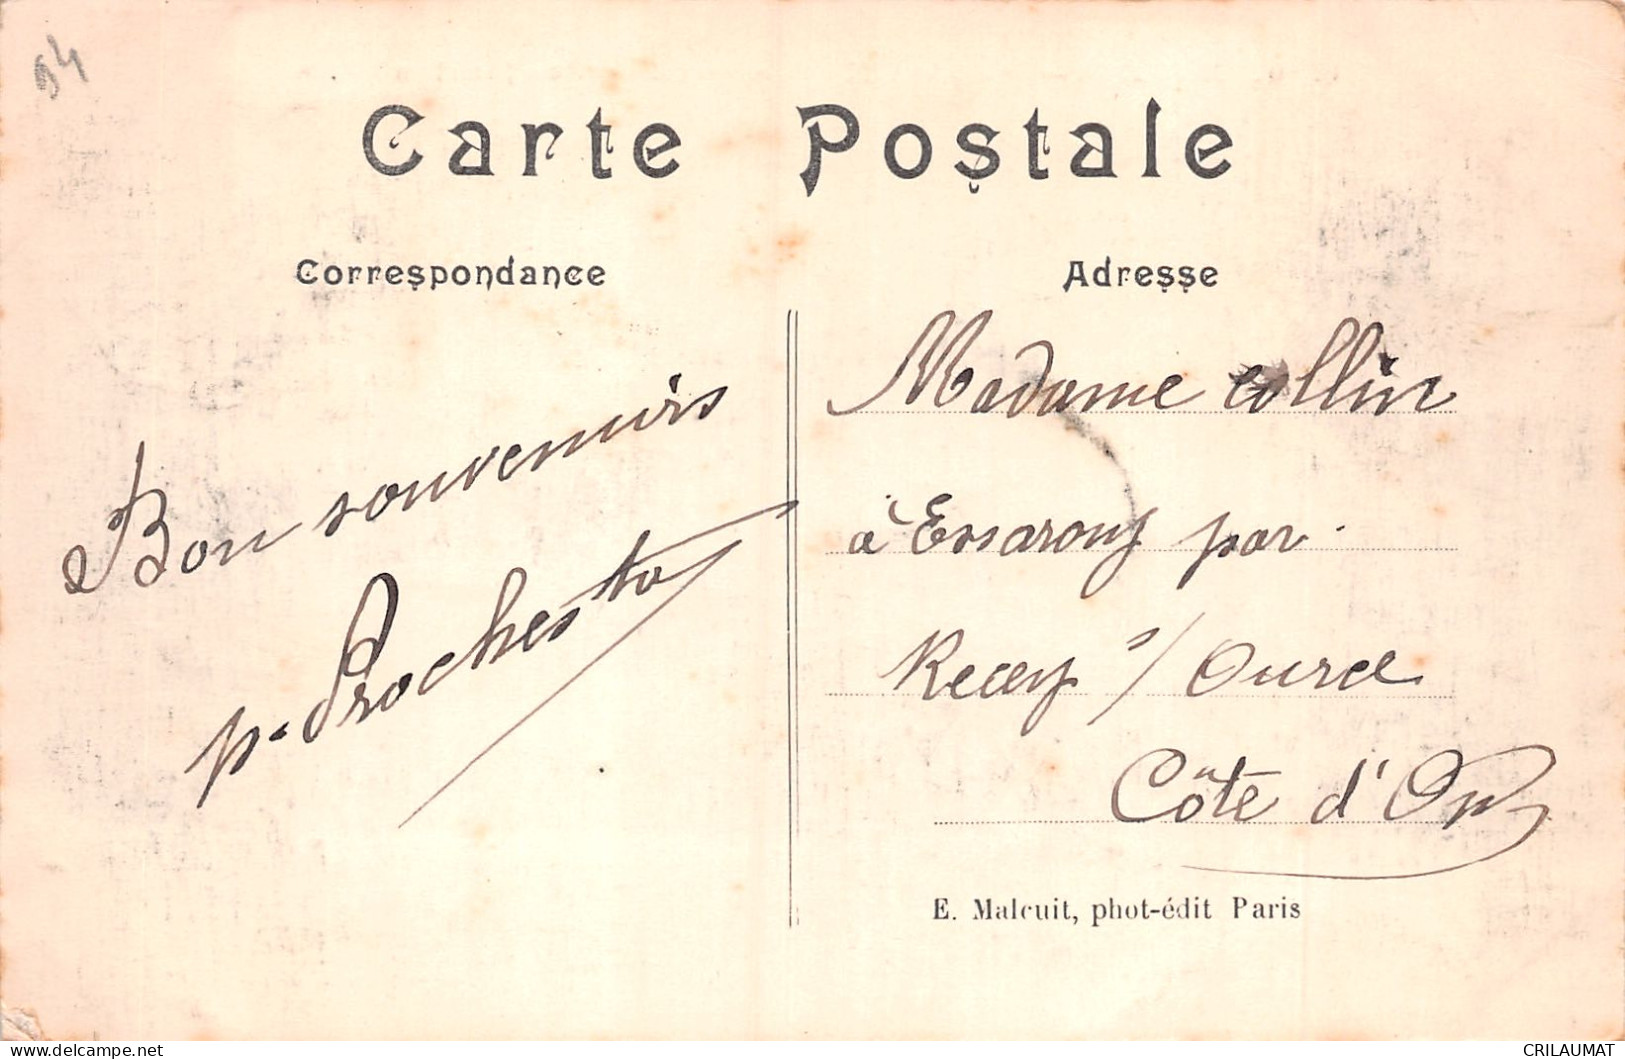 94
Carte Postale
Correspondance
Adresse
Bon souvenirs
Madame Collin
à Essarois par
Recey s/ Ource
Côte d'Or
E. Malcuit, phot-édit Paris
CRILAUMAT